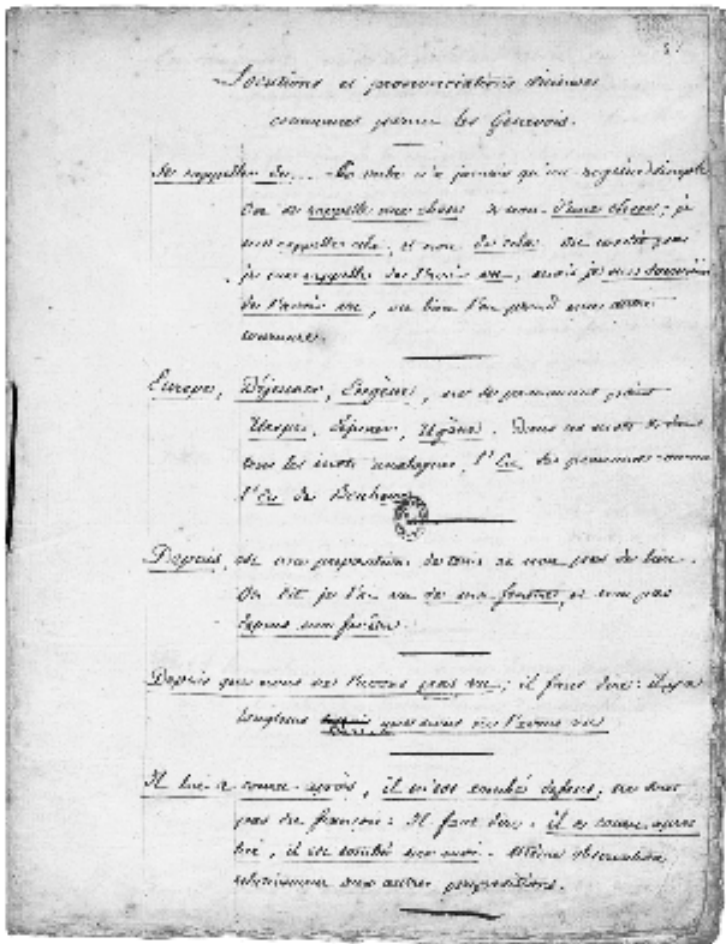 Locutions et prononciations vicieuses
communes parmi les Genevois.
Se rappeller de... Ce verbe n'a jamais qu'un régime simple
On se rappelle une chose et non d'une chose; je
me rappelle cela, et non de cela. On ne dit pas
je me rappelle de l'avoir vu, mais je me souviens
de l'avoir vu, ou bien l'on prend une autre
tournure.
Europe, Déjeuner, Eugène, ne se prononcent point
Urope, Déjuner, Ugène. Dans ces mots et dans
tous les mots analogues, l'Eu se prononce comme
l'Eu de Bonheur
Depuis, est une préposition de tems et non pas de lieu.
On dit je l'ai vu de ma fenêtre, et non pas
depuis ma fenêtre.
Depuis que nous ne l'avons pas vu; il faut dire: il y a
longtems que nous ne l'avons vu
Il lui a couru après, il m'est tombé dessus, ne sont
pas du françois: Il faut dire. il a couru après
lui, il est tombé sur moi. Même observation
relativement aux autres prépositions.